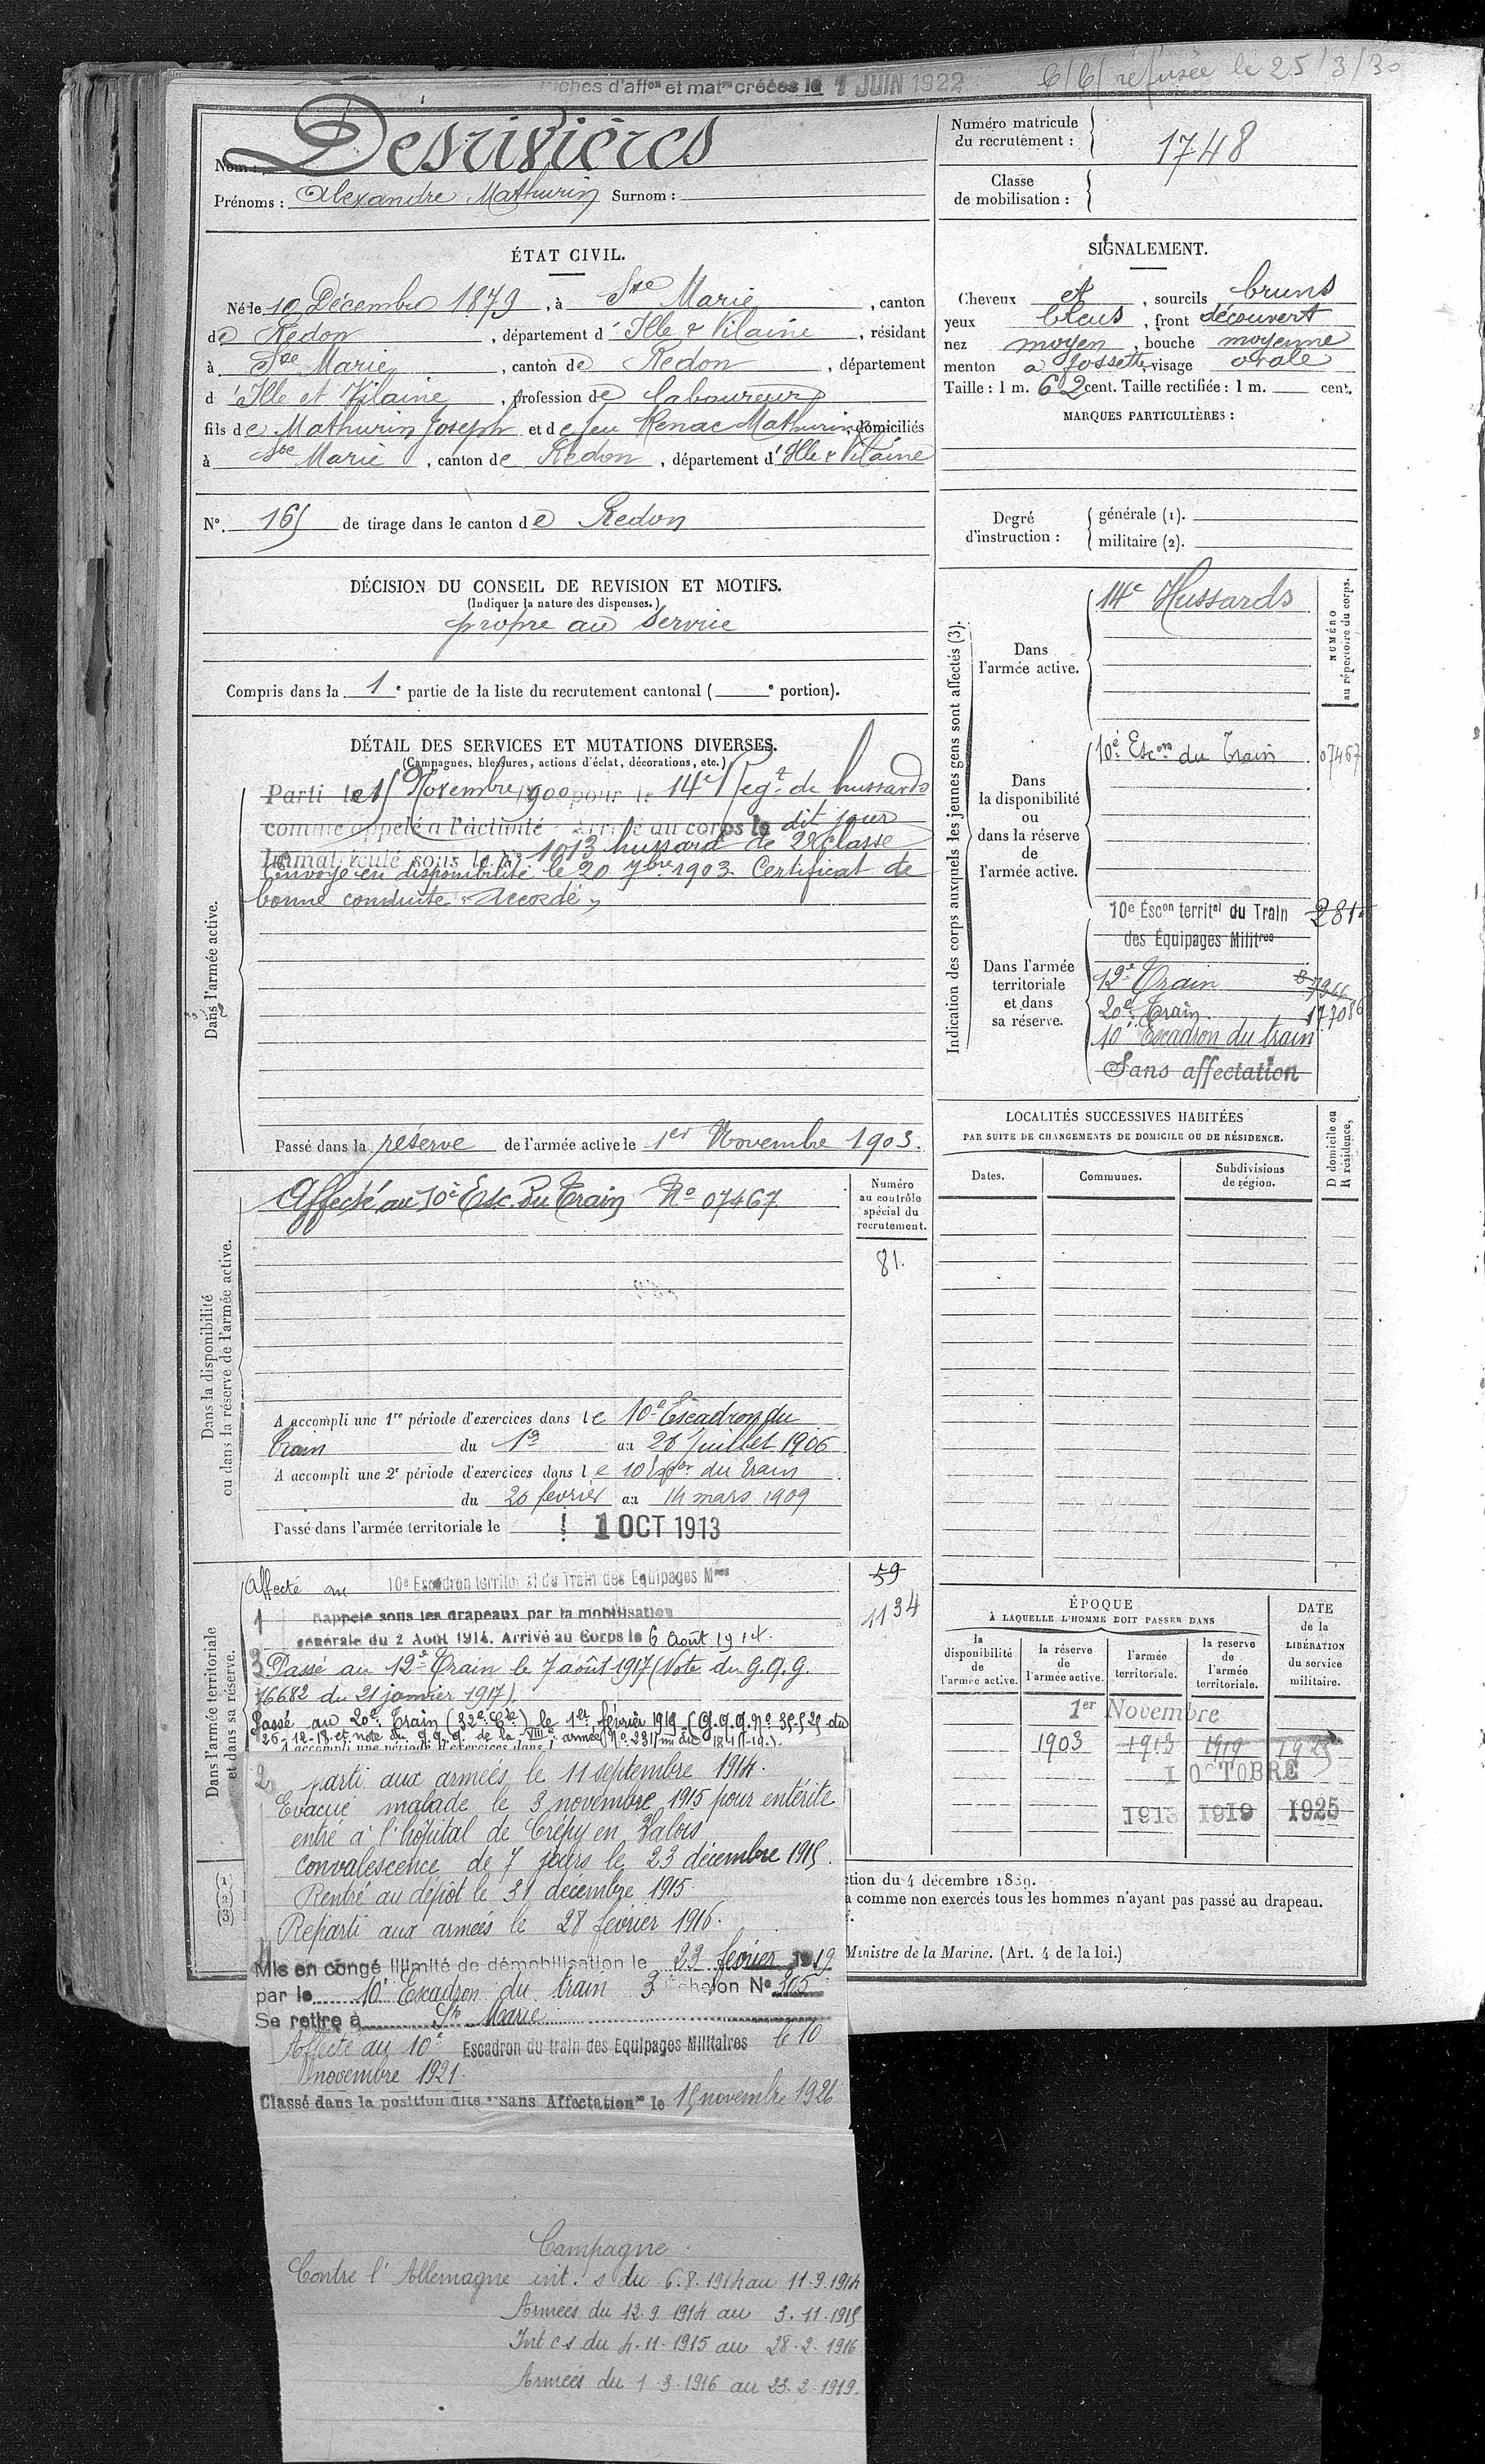 Fiches d'affon et matre créées le 1 JUIN 1922
refusée le 25/3/30
Nom : Desrivières
Prénoms : Alexandre Mathurin Surnom :
Numéro matricule du recrutement : 1748
Classe de mobilisation :
ÉTAT CIVIL.
Né le 10 Décembre 1879, à Ste Marie, canton
de Redon, département d'Ille & Vilaine, résidant
à Ste Marie, canton de Redon, département
d'Ille et Vilaine, profession de laboureur
fils de Mathurin Joseph et de feu Renac Mathurine, domiciliés
à Ste Marie, canton de Redon, département d'Ille & Vilaine
N°. 165 de tirage dans le canton de Redon
SIGNALEMENT.
Cheveux et, sourcils bruns
yeux bleus, front découvert
nez moyen, bouche moyenne
menton à fossette, visage ovale
Taille : 1 m. 62 cent. Taille rectifiée : 1 m. cent.
MARQUES PARTICULIÈRES :
Degré d'instruction :
générale (1).
militaire (2).
DÉCISION DU CONSEIL DE REVISION ET MOTIFS.
(Indiquer la nature des dispenses.)
propre au service
Compris dans la 1e partie de la liste du recrutement cantonal ( e portion).
DÉTAIL DES SERVICES ET MUTATIONS DIVERSES.
(Campagnes, blessures, actions d'éclat, décorations, etc.)
Dans l'armée active.
Parti le 15 Novembre 1900 pour le 14e Regt de hussards
comme appelé à l'activité Arrivé au corps le dit jour
Immatriculé sous le n° 1013 hussard de 2e classe
Envoyé en disponibilité le 20 7bre 1903 Certificat de
bonne conduite "Accordé"
Passé dans la réserve de l'armée active le 1er Novembre 1903.
Dans la disponibilité
ou dans la réserve de l'armée active.
Affecté au 10e Esc. du Train No 07467
Numéro au contrôle spécial du recrutement.
81.
A accompli une 1re période d'exercices dans le 10e Escadron du
train du 1er au 28 Juillet 1906
A accompli une 2e période d'exercices dans le 10 Escon du train
du 26 février au 14 mars 1909
Passé dans l'armée territoriale le 1 OCT 1913
Dans l'armée territoriale
et dans sa réserve.
Affecté au 10e Escadron territorial du Train des Equipages Mres
59
1134
1 Rappelé sous les drapeaux par la mobilisation
générale du 2 Août 1914. Arrivé au Corps le 6 Août 1914.
3 Passé au 12e Train le 7 août 1917 (Note du G.Q.G.
76682 du 21 janvier 1917).
Passé au 20e Train (32e Cie) le 1er février 1919 (G.Q.G. No 35.525 du
26-12-18 et note du G.Q.G. de la VIIIe armée
A accompli une période d'exercices dans l
2 parti aux armées le 11 septembre 1914.
Evacué malade le 3 novembre 1915 pour entérite
entré à l'hôpital de Crépy en Valois
convalescence de 7 jours le 23 décembre 1915.
Rentré au dépôt le 31 décembre 1915
Reparti aux armées le 28 février 1916.
Mis en congé illimité de démobilisation le 23 février 1919
par le 10e Escadron du train 3 échelon No 305
Se retire à Ste Marie
Affecté au 10e Escadron du train des Equipages Militaires le 10
novembre 1921.
Classé dans la position dite "Sans Affectation" le 15 novembre 1926
Campagne.
Contre l'Allemagne int. s du 6.8.1914 au 11.9.1914
Armées du 12.9.1914 au 3.11.1915
Int cs du 4.11.1915 au 28.2.1916
Armées du 1.3.1916 au 23.2.1919.
Indication des corps auxquels les jeunes gens sont affectés (3).
NUMÉRO au répertoire du corps.
Dans l'armée active.
14e Hussards
Dans la disponibilité ou dans la réserve de l'armée active.
10e Escon du Train 07467
Dans l'armée territoriale et dans sa réserve.
10e Escon territal du Train 281
des Équipages Militres
12e Train
20e Train 17708
10e Escadron du train
Sans affectation
LOCALITÉS SUCCESSIVES HABITÉES
PAR SUITE DE CHANGEMENTS DE DOMICILE OU DE RÉSIDENCE.
Dates. Communes. Subdivisions de région.
D domicile ou
R résidence,
ÉPOQUE
À LAQUELLE L'HOMME DOIT PASSER DANS
la disponibilité de l'armée active.
la réserve de l'armée active.
l'armée territoriale.
la réserve de l'armée territoriale.
DATE de la LIBÉRATION du service militaire.
1er Novembre
1903 1913 1919 1925
1 OCTOBRE
1913 1919 1925
(1)
(2)
(3)
ction du 4 décembre 1889.
a comme non exercés tous les hommes n'ayant pas passé au drapeau.
Ministre de la Marine. (Art. 4 de la loi.)